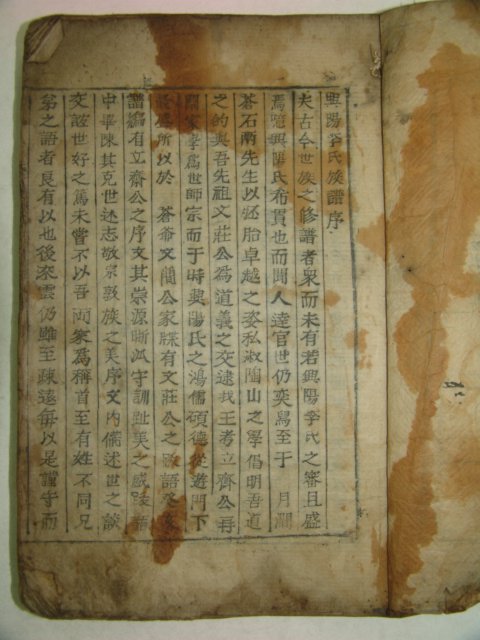 興陽李氏族譜序
夫古今世族之修譜者衆而未有若興陽李氏之審且盛
焉噫興陽氏希貫也而聞人達官世仍奕舃至于 月澗
蒼石兩先生以胚胎卓越之姿私淑陶山之學倡明吾道
之的與吾先祖文莊公為道義之交逮我王考立齋公再
家學爲世師宗而于時興陽氏之鴻儒碩德從遊門下
所以於 蒼爺文簡公家牒有文莊公之跋語
譜編有立齋公之序文其崇源晰派守訓趾美之盛
中畢陳其克世述志敬宗敦族之美序文內備述世之談
交誼世好之篤未嘗不以吾兩家為稱首至有姓不同兄
弟之語者良有以也後來雲仍雖至疎遠每以是謹守而